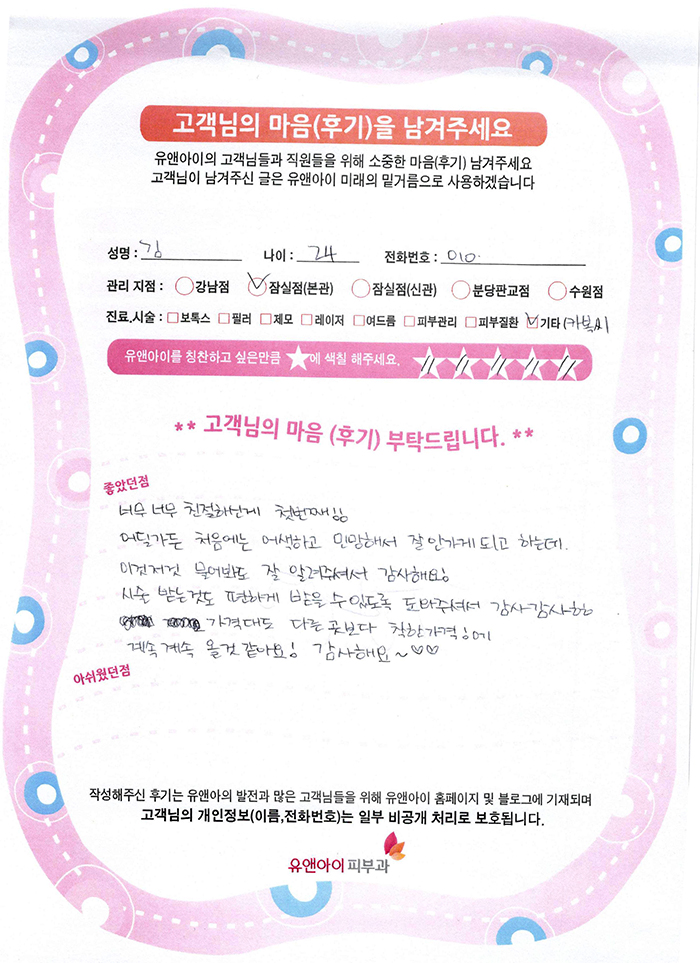 고객님의 마음(후기)을 남겨주세요
유앤아이의 고객님들과 직원들을 위해 소중한 마음(후기) 남겨주세요
고객님이 남겨주신 글은 유앤아이 미래의 밑거름으로 사용하겠습니다
성명 : 김 나이 : 24 전화번호 : 010.
관리 지점 : 강남점 잠실점(본관) 잠실점(신관) 분당판교점 수원점
진료.시술 : 보톡스 필러 제모 레이저 여드름 피부관리 피부질환 기타(카복시
유앤아이를 칭찬하고 싶은만큼 ★에 색칠 해주세요.
** 고객님의 마음 (후기) 부탁드립니다. **
좋았던점
너무 너무 친절하신게 첫번째!!
어딜가든 처음에는 어색하고 민망해서 잘안가게되고 하는데.
이것저것 물어봐도 잘 알려주셔서 감사해요!!
시술 받는것도 편하게 받을 수 있도록 도와주셔서 감사감사함
가격대도 다른곳보다 착한가격!!에
계속계속 올것같아요! 감사해요~♡♡
아쉬웠던점
작성해주신 후기는 유앤아의 발전과 많은 고객님들을 위해 유앤아이 홈페이지 및 블로그에 기재되며
고객님의 개인정보(이름,전화번호)는 일부 비공개 처리로 보호됩니다.
유앤아이피부과